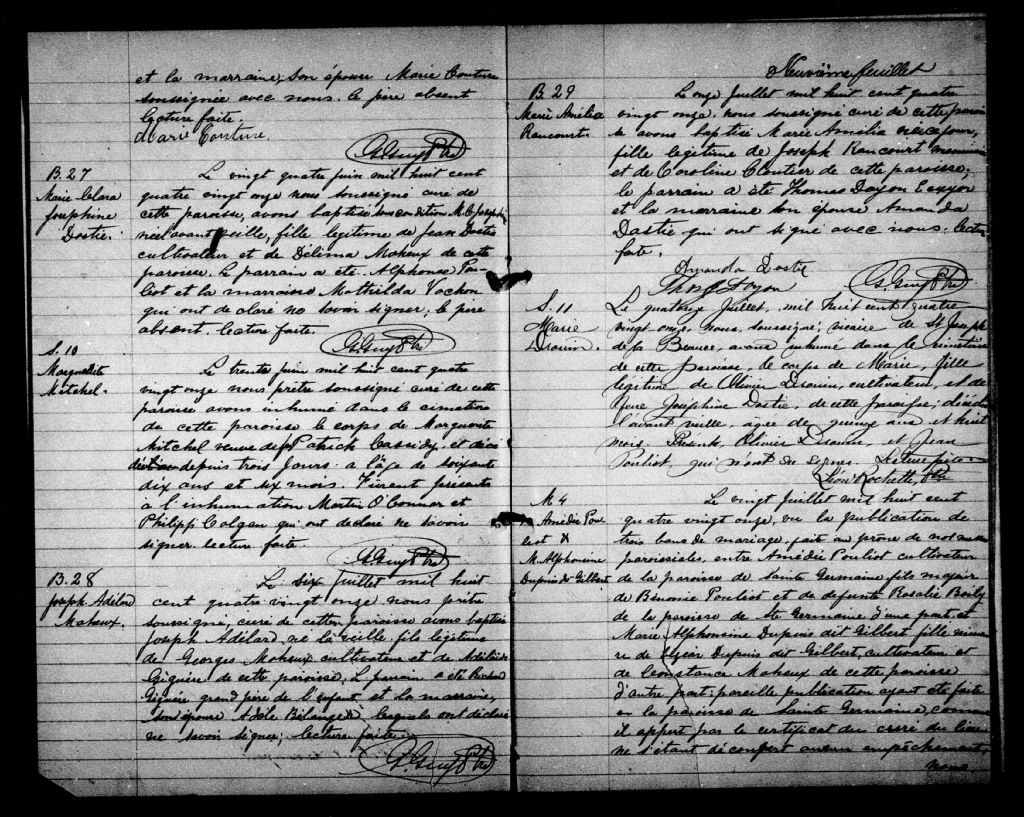 et la marraine, son épouse Marie Couture
soussignée avec nous. le père absent
lecture faite.
Marie Couture.
G. Guy Ptre
B. 27
Marie Clara
Josephine
Dostie.
Le vingt quatre juin mil huit cent
quatre vingt onze nous soussigné curé de
cette paroisse, avons baptisé sous condition M. C. Josephine
née l'avant veille, fille legitime de Jean Dostie
cultivateur et de Délima Maheux de cette
paroisse. Le parrain a été Alphonse Pou-
liot et la marraine Mathilda Vachon
qui ont declaré ne savoir signer, le père
absent. lecture faite.
G. Guy Ptre
S. 10
Marguerite
Mitchel.
Le trente juin mil huit cent quatre
vingt onze nous prêtre soussigné curé de cette
paroisse avons inhumé dans le cimetière
de cette paroisse le corps de Marguerite
Mitchel veuve de Patrick Cassidy, et décé
dée depuis trois jours à l'âge de soixante
dix ans et six mois. Furent présents
à l'inhumation Martin O'Connor et
Philipp Colgan qui ont declaré ne savoir
signer lecture faite.
G. Guy Ptre
B. 28
Joseph Adélard
Maheux.
Le six juillet mil huit
cent quatre vingt onze nous prêtre
soussigné, curé de cette paroisse avons baptisé
Joseph Adélard, né la veille fils légitime
de Georges Maheux cultivateur et de Adélaïde
Giguère de cette paroisse. Le parrain a été
Giguère grand père de l'enfant et la marraine,
son épouse Adèle Bélanger lesquels ont déclaré
ne savoir signer; lecture faite.
G. Guy Ptre
Neuvième feuillet
B. 29
Marie Amélie
Rancourt
Le onze Juillet mil huit cent quatre
vingt onze, nous soussigné curé de cette parois
se avons baptisé Marie Amélie née ce jour,
fille legitime de Joseph Rancourt
et de Caroline Cloutier de cette paroisse;
le parrain a été Thomas Doyon
et la marraine son épouse Amanda
Dostie qui ont signé avec nous. lecture
faite.
Amanda Dostie
Thos Doyon
G. Guy Ptre
S. 11
Marie
Drouin.
Le quatorze Juillet, mil huit cent quatre
vingt onze, nous, soussigné, vicaire de St Joseph
de la Beauce, avons inhumé dans le cimetière
de cette paroisse, le corps de Marie, fille
légitime de Olivier Drouin, cultivateur, et de
feue Joséphine Dostie, de cette paroisse, décédée
l'avant veille, agée de quinze ans et huit
mois. Présents, Olivier Drouin, et Jean
Pouliot, qui n'ont su signer. Lecture faite.
Léon Rochette, Ptre
M. 4
Amédée Pou
liot &
M. Alphonsine
Dupuis dit Gilbert
Le vingt juillet mil huit cent
quatre vingt onze, vu la publication de
trois bans de mariage, fait au prône de nos messes
paroissiales, entre Amédée Pouliot cultivateur
de la paroisse de Sainte Germaine fils majeur
de Bénonie Pouliot et de defunte Rosalie Boily
de la paroisse de Ste Germaine d'une part, et
Marie Alphonsine Dupuis dit Gilbert fille mineu
re de Dupuis dit Gilbert, cultivateur et
de Constance Maheux de cette paroisse
d'autre part; pareille publication ayant été faite
en la paroisse de Sainte Germaine, comme
il appert par le certificat du curé du lieu
ne s'étant découvert aucun empêchement,
nous